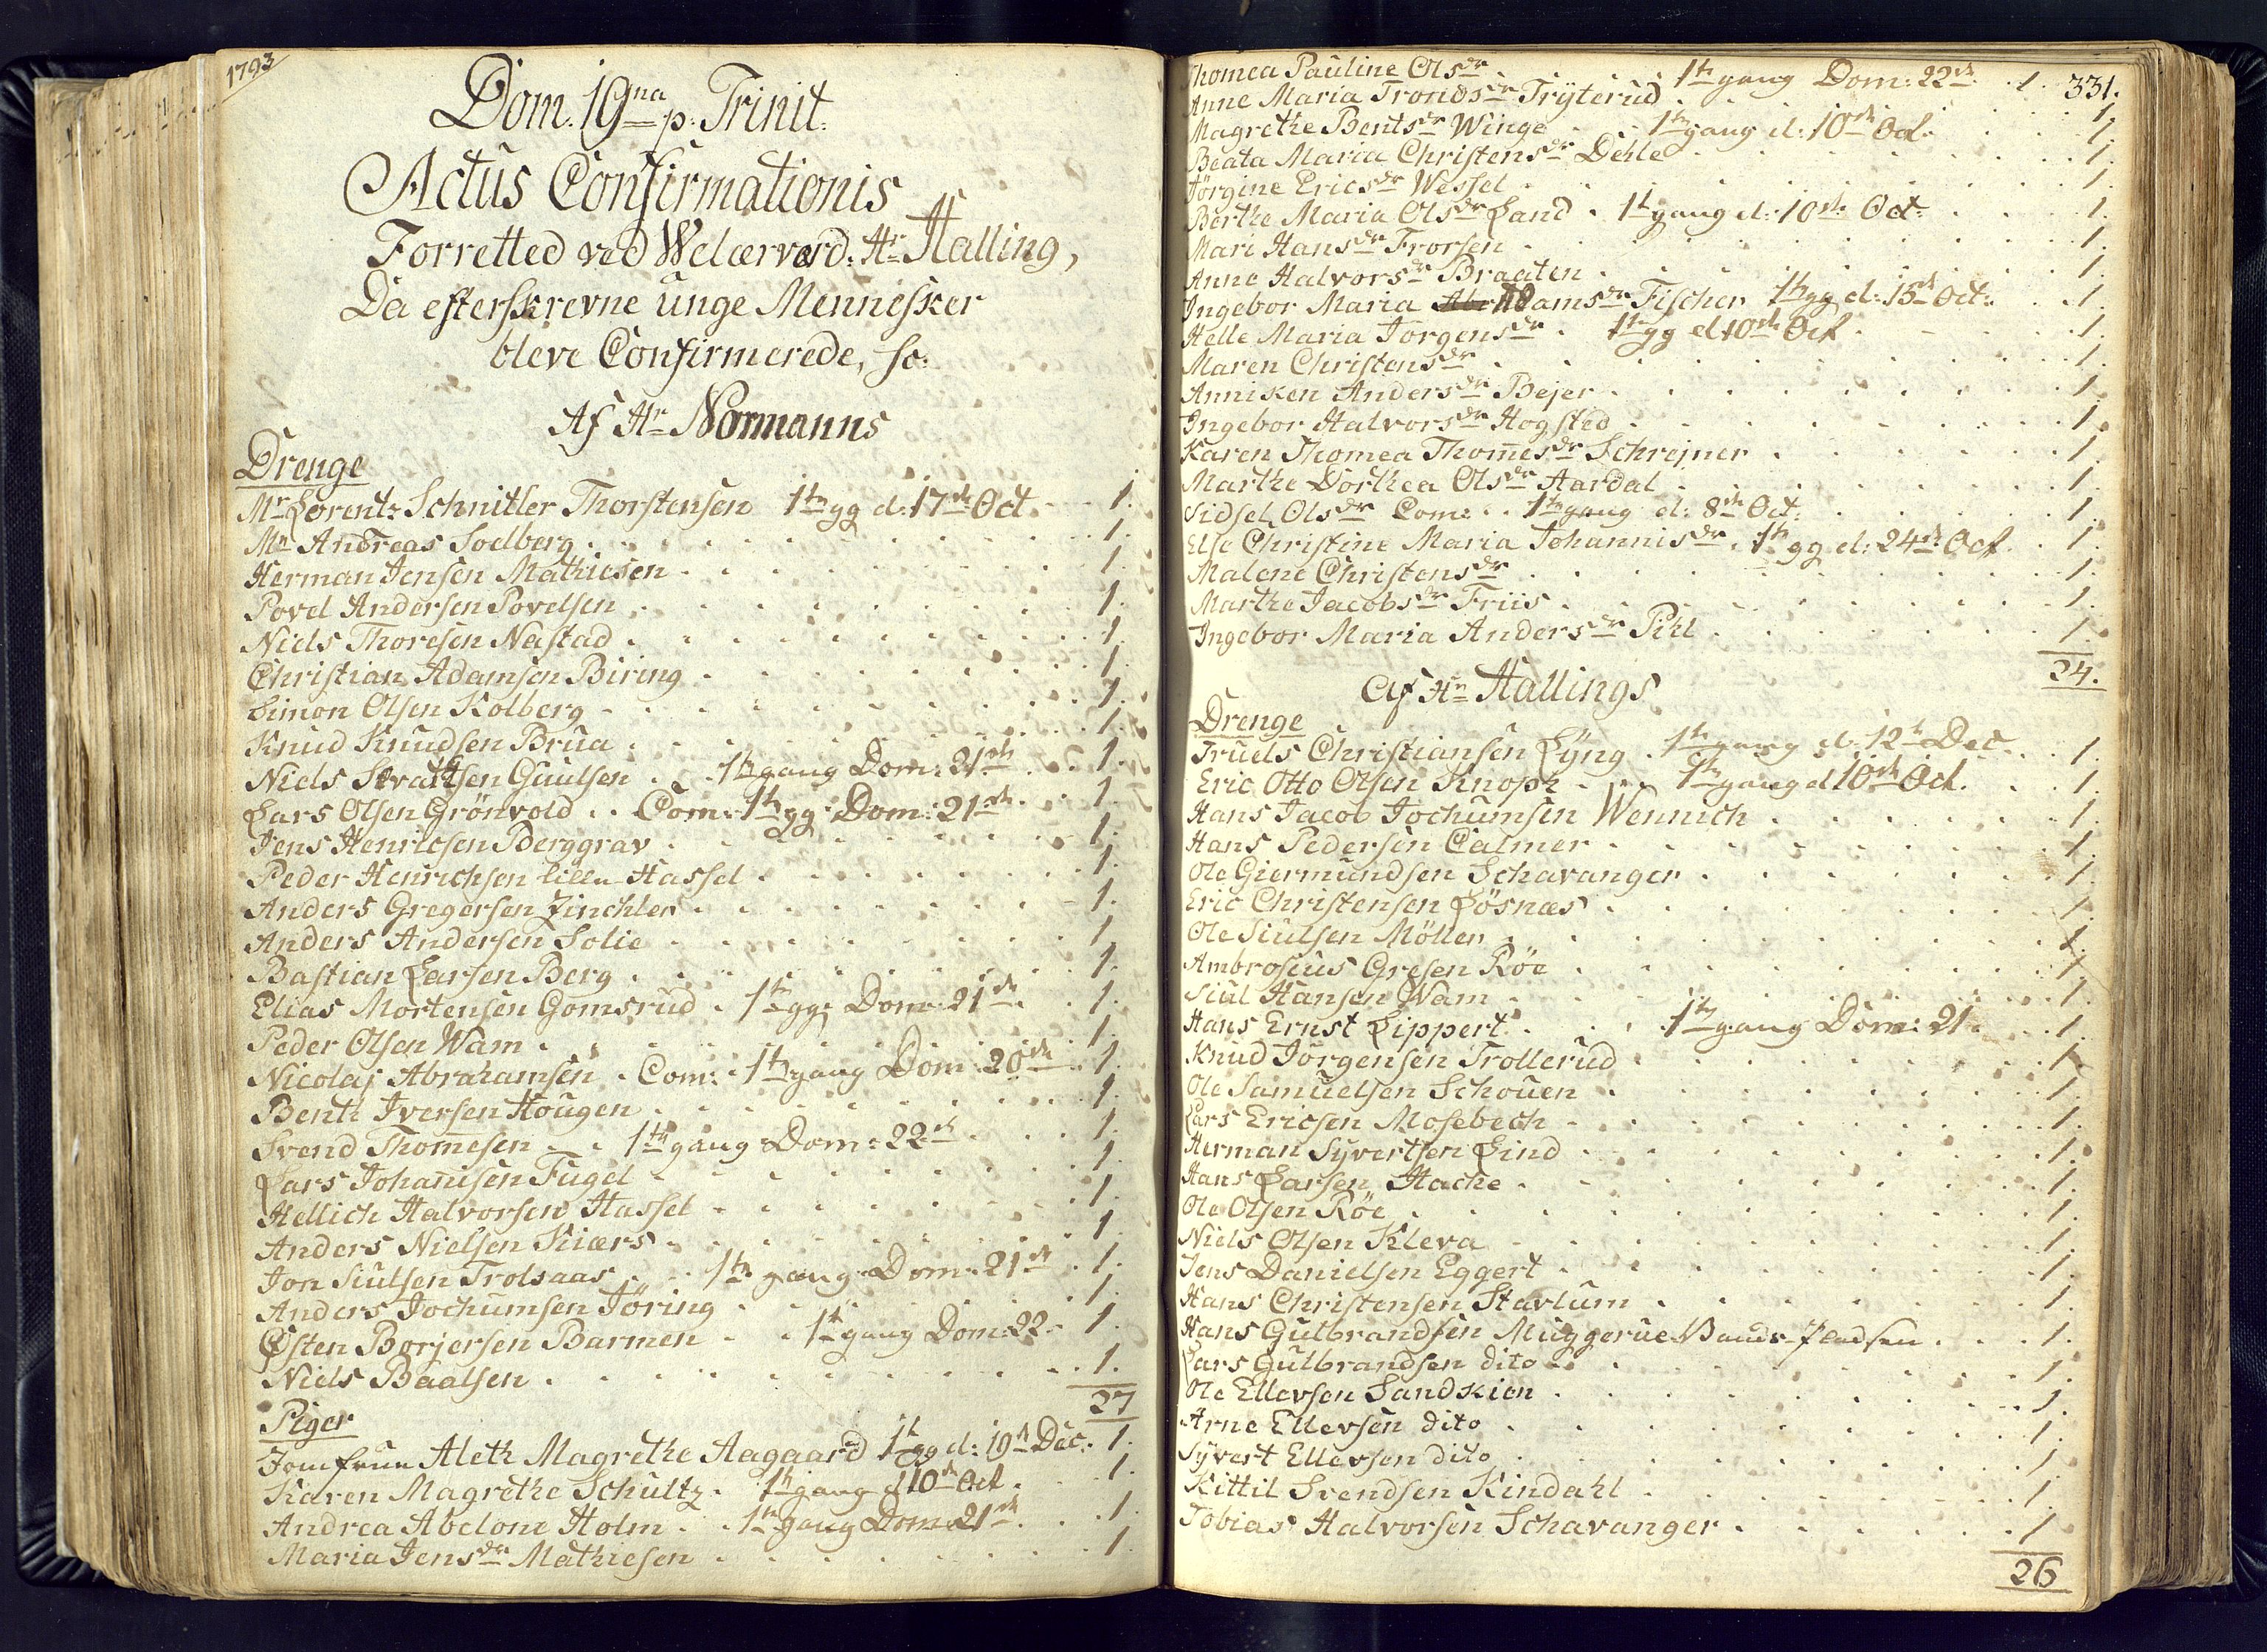 1793
Dom. 19na p. Trinit.
Actus Confirmationis
Forretted ved Welærværd: Hr Halling,
Da efterskrevne unge Mennisker
bleve Confirmerede, sc:
Af Hr Normanns
Drenge
Mr Lorentz Schnitler Thorstensen 1te gg d: 17de Oct. 1.
Mr Andreas Soelberg 1.
Herman Jensen Mathiesen 1.
Povel Andersen Povelsen 1.
Niels Thoresen Nastad 1.
Christian Adamsen Biring 1.
Simon Olsen Kolberg 1.
Knud Knudsen Brua 1.
Niels Guulsen 1te gang Dom: 21de 1.
Lars Olsen Grönvold Com: 1te gg Dom: 21de 1.
Jens Henricsen Berggrav 1.
Peder Henrichsen lille Hassel 1.
Anders Gregersen Zinchler 1.
Anders Andersen Solie 1.
Bastian Larsen Berg 1.
Elias Mortensen Gomsrud 1te gg: Dom: 21de 1.
Peder Olsen Wam 1.
Nicolaj Abrahamsen Com: 1te gang Dom: 20de 1.
Bent Iversen Hougen 1.
Svend Thom̄esen 1te gang Dom: 22de 1.
Lars Johan̄isen Fugel 1.
Hellich Halvorsen Hassel 1.
Anders Nielsen Kiærs 1.
Jon Siulsen Trolsaas 1te gang Dom: 21de 1.
Anders Jochumsen Jöring 1.
Östen Borjersen Barmen 1te gang Dom: 22 1.
Niels Baalsen 1.
27
Piger
Jomfrue Aleth Magrethe Aagaard 1te gg d: 19de Dec: 1.
Karen Magrethe Schultz 1te gang d 10de Oct. 1.
Andrea Abelone Holm 1te gang Dom 21de 1.
Maria Jensdr Mathiesen 1.
331.
Thomea Pauline Olsdr 1te gang Dom: 22de 1.
Anne Maria Trondsdr Trÿterud 1.
Magrethe Bentsdr Winge 1te gang d: 10de Oct. 1.
Beata Maria Christensdr Dehle 1.
Jörgine Ericsdr Wessel 1.
Berthe Maria Olsdr Land 1te gang d: 10de Oct: 1.
Mari Hansdr Frorsen 1.
Anne Halvorsdr Braaten 1.
Ingebor Maria Adamsdr Fischer 1te gg d: 15de Oct: 1.
Helle Maria Jörgensdr 1te gg d 10de Oct 1.
Maren Christensdr 1.
Anniken Andersdr Bejer 1.
Ingebor Halvorsdr Hogsted 1.
Karen Thomea Thom̄esdr Schrejner 1.
Marthe Dorthea Olsdr Aardal 1.
Sidsel Olsdr Com: 1te gang d: 8de Oct: 1.
Else Christine Maria Johannisdr 1te gg d: 24de Oct. 1.
Malene Christensdr 1.
Marthe Jacobsdr Friis 1.
Ingebor Maria Andersdr Pihl 1.
24.
Af Hr Hallings
Drenge
Truels Christiansen Lÿng 1te gang d: 12te Dec. 1.
Eric Otto Olsen Knoph 1te gang d 10de Oct. 1.
Hans Jacob Jochumsen Wennich 1.
Hans Pedersen Calmer 1.
Ole Giermundsen Schavanger 1.
Eric Christensen Lösnæs 1.
Ole Siulsen Möller 1.
Ambrosius Gresen Röe 1.
Siul Hansen Wam 1.
Hans Ernst Lippert 1te gang Dom: 21 1.
Knud Jörgensen Trollerud 1.
Ole Samuelsen Schouen 1.
Lars Ericsen Mosebech 1.
Herman Syvertsen Lind 1.
Hans Larsen Hache 1.
Ole Olsen Röe 1.
Niels Olsen Kleva 1.
Jens Danielsen Eggert 1.
Hans Christensen Stavlum 1.
Hans Gulbrandsen Muggerue 1.
Lars Gulbrandsen dito 1.
Ole Ellevsen Sandskien 1.
Arne Ellevsen dito 1.
Sÿvert Ellevsen dito 1.
Kittil Svendsen Kindahl 1.
Tobias Halvorsen Schavanger 1.
26